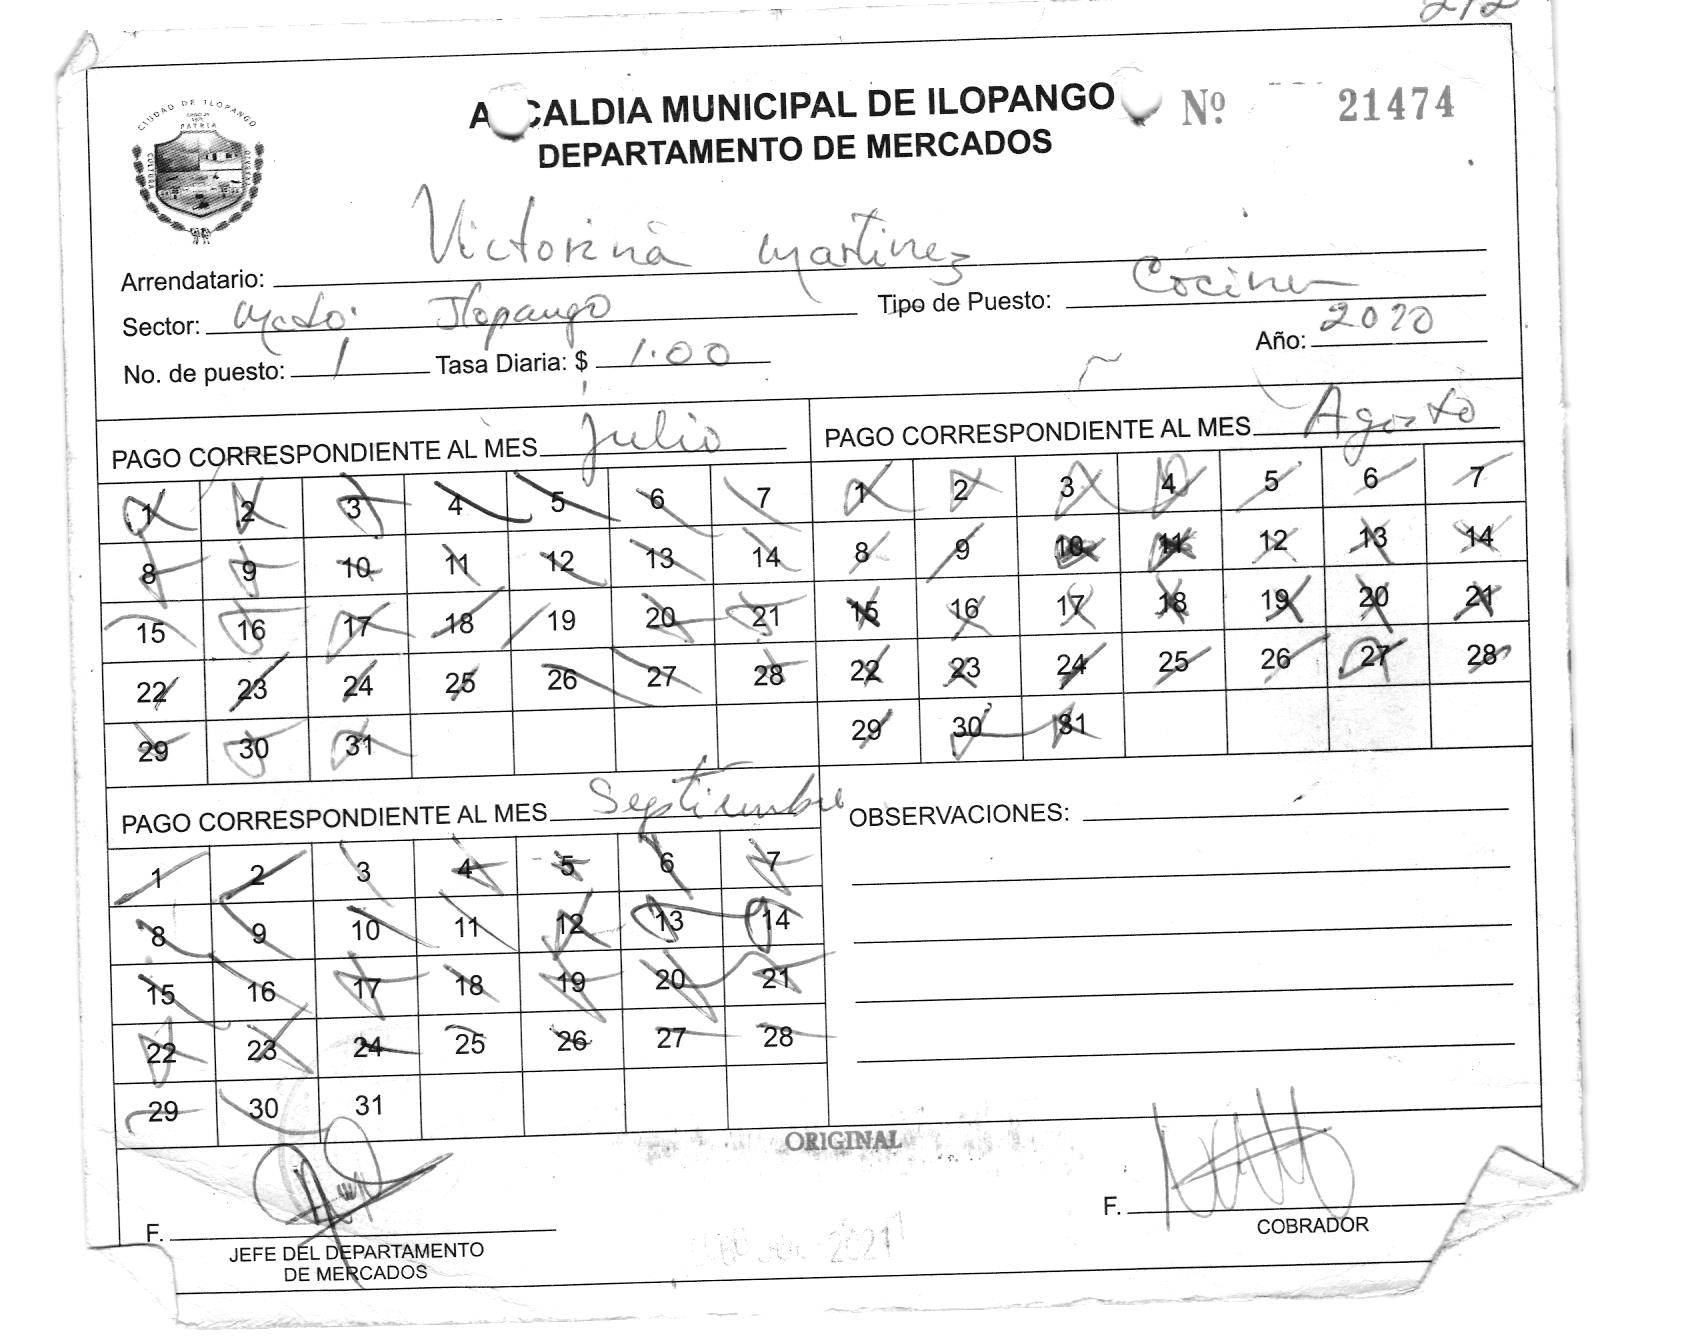 212
ALCALDIA MUNICIPAL DE ILOPANGO
Nº 21474
DEPARTAMENTO DE MERCADOS
CIUDAD DE ILOPANGO
PATRIA
CULTURA
Arrendatario: Victorina Martinez
Sector: Mcdo. Ilopango
Tipo de Puesto: Cocina
No. de puesto: 1 Tasa Diaria: $ 1.00
Año: 2020
PAGO CORRESPONDIENTE AL MES julio
1 2 3 4 5 6 7
8 9 10 11 12 13 14
15 16 17 18 19 20 21
22 23 24 25 26 27 28
29 30 31
PAGO CORRESPONDIENTE AL MES Agosto
1 2 3 4 5 6 7
8 9 10 11 12 13 14
15 16 17 18 19 20 21
22 23 24 25 26 27 28
29 30 31
PAGO CORRESPONDIENTE AL MES Septiembre
1 2 3 4 5 6 7
8 9 10 11 12 13 14
15 16 17 18 19 20 21
22 23 24 25 26 27 28
29 30 31
OBSERVACIONES:
ORIGINAL
F.
JEFE DEL DEPARTAMENTO
DE MERCADOS
2021
F.
COBRADOR